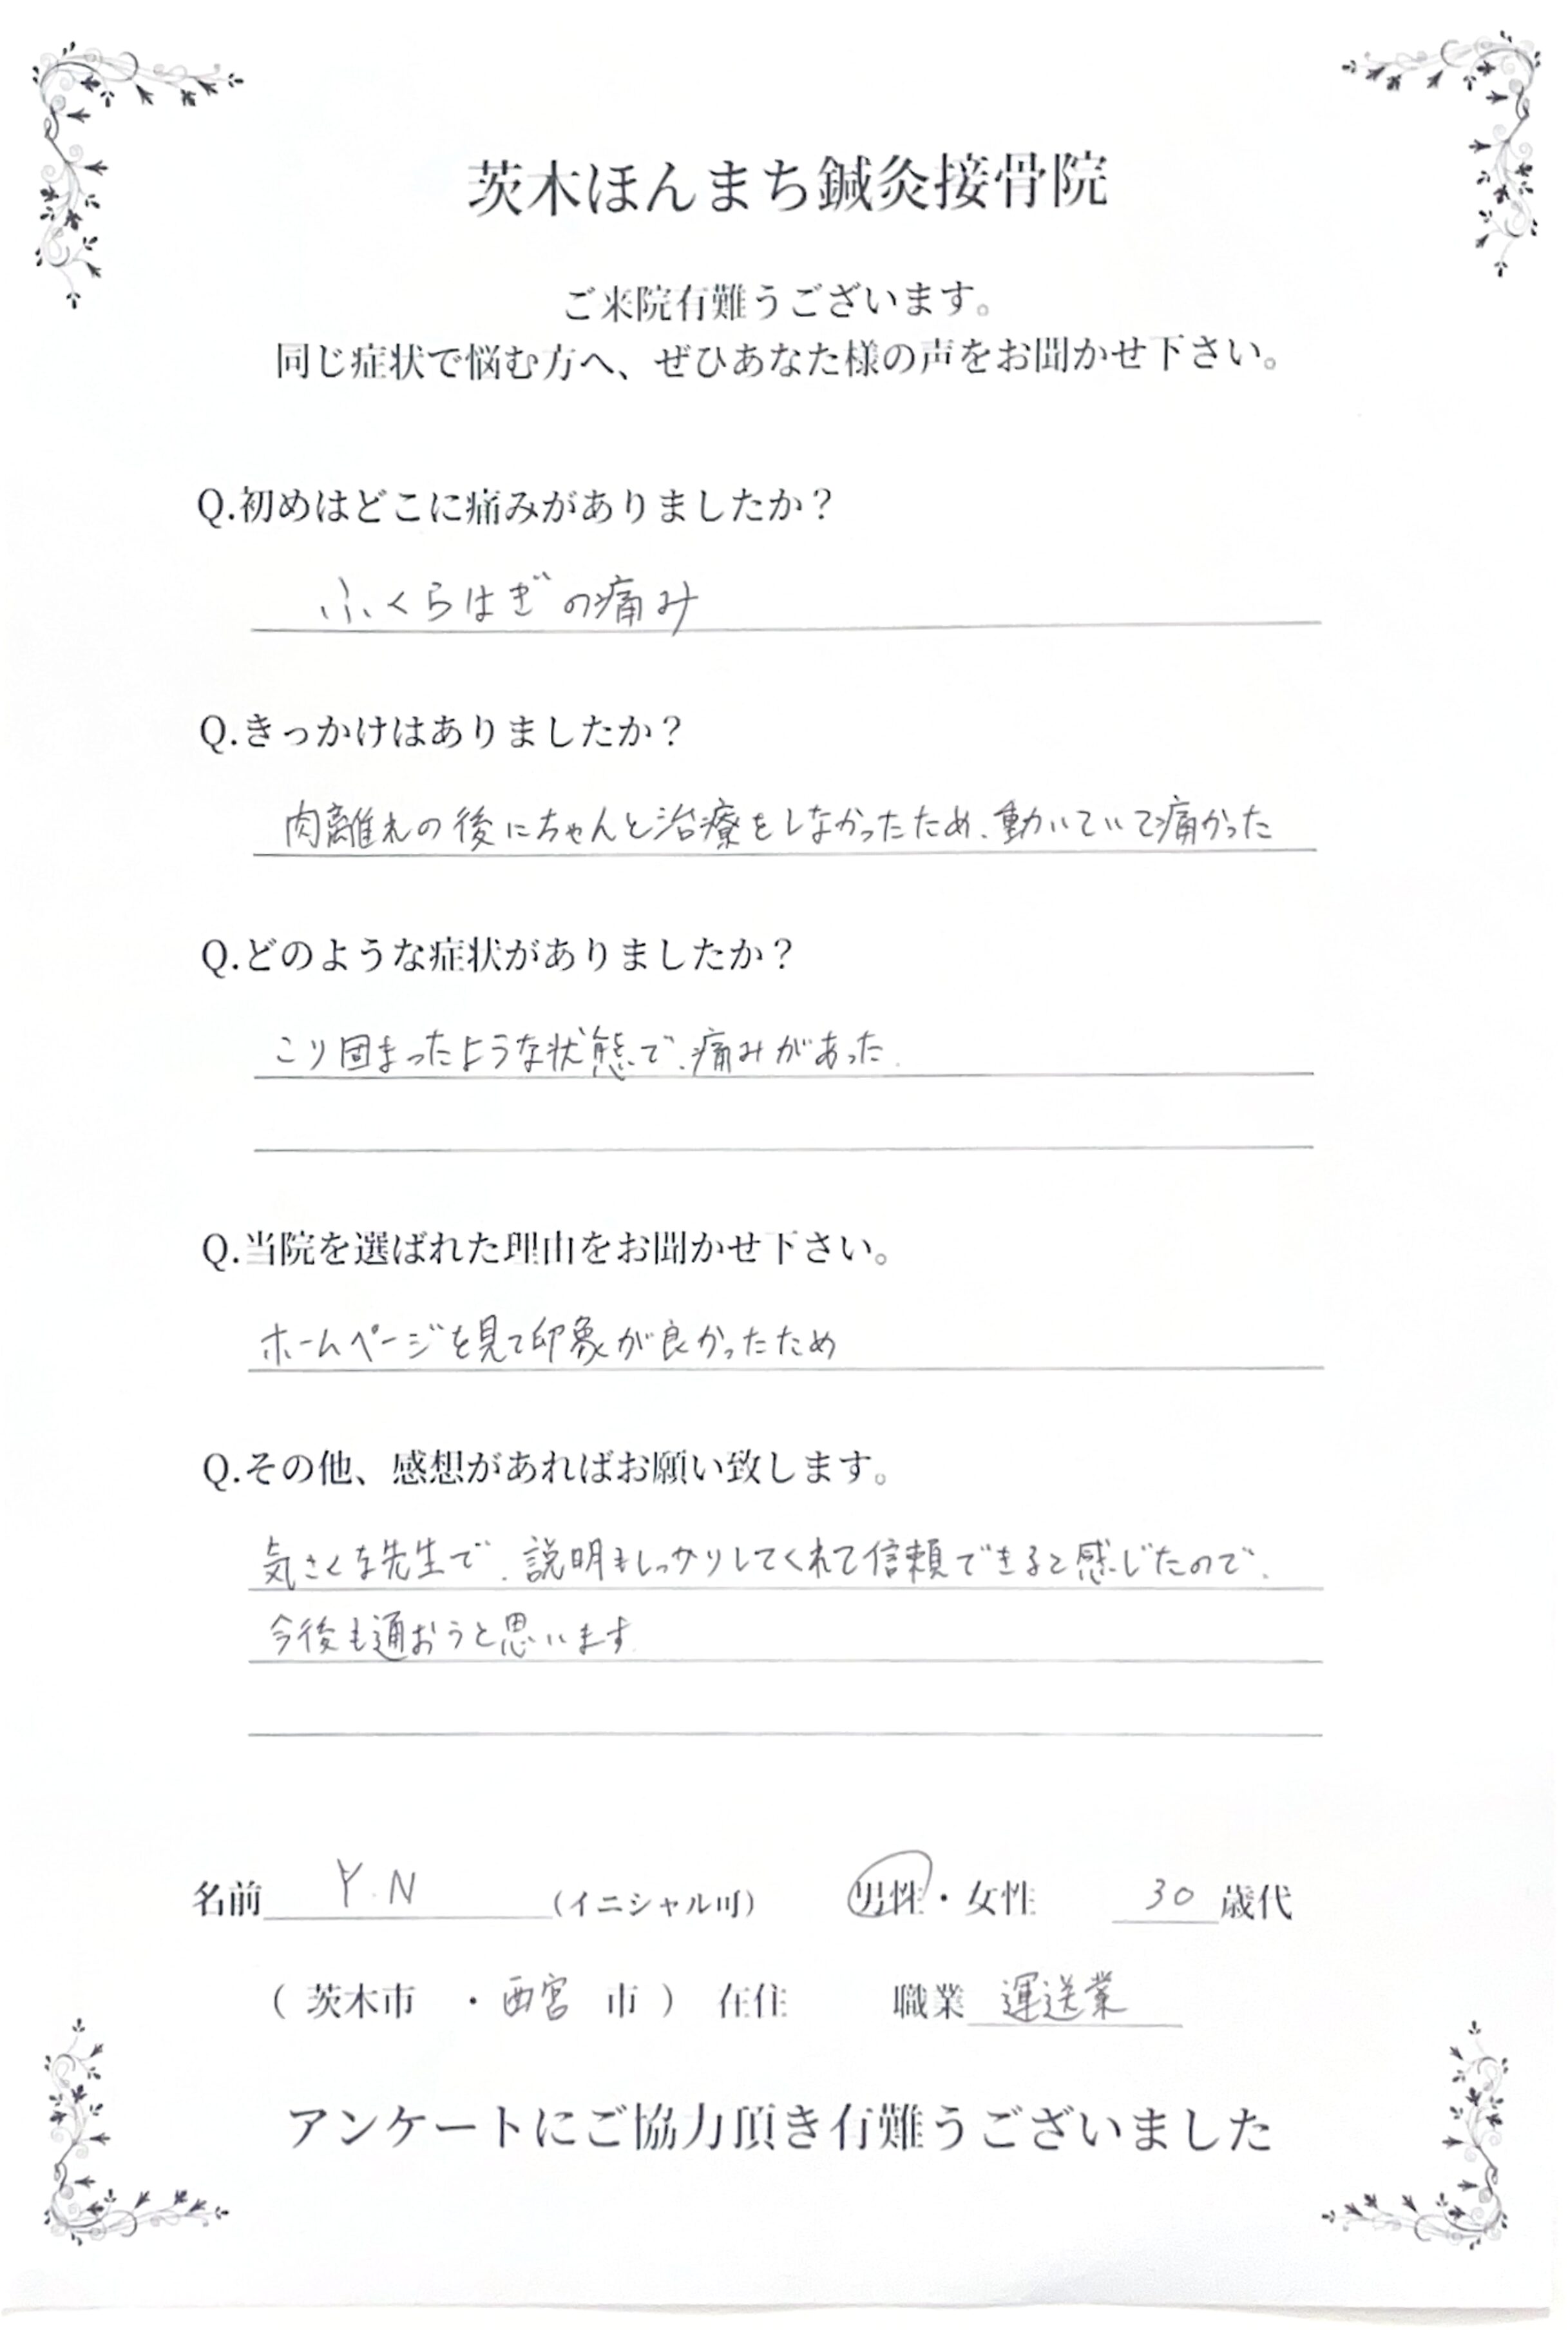 茨木ほんまち鍼灸接骨院
ご来院有難うございます。
同じ症状で悩む方へ、ぜひあなた様の声をお聞かせ下さい。
Q.初めはどこに痛みがありましたか？
ふくらはぎの痛み
Q.きっかけはありましたか？
肉離れの後にちゃんと治療をしなかったため、動いていて痛かった
Q.どのような症状がありましたか？
こり固まったような状態で、痛みがあった.
Q.当院を選ばれた理由をお聞かせ下さい。
ホームページを見て印象が良かったため
Q.その他、感想があればお願い致します。
気さくな先生で、説明もしっかりしてくれて信頼できると感じたので、
今後も通おうと思います.
名前 Y.N (イニシャル可) 男性・女性 30 歳代
( 茨木市 ・西宮 市 ) 在住 職業 運送業
アンケートにご協力頂き有難うございました